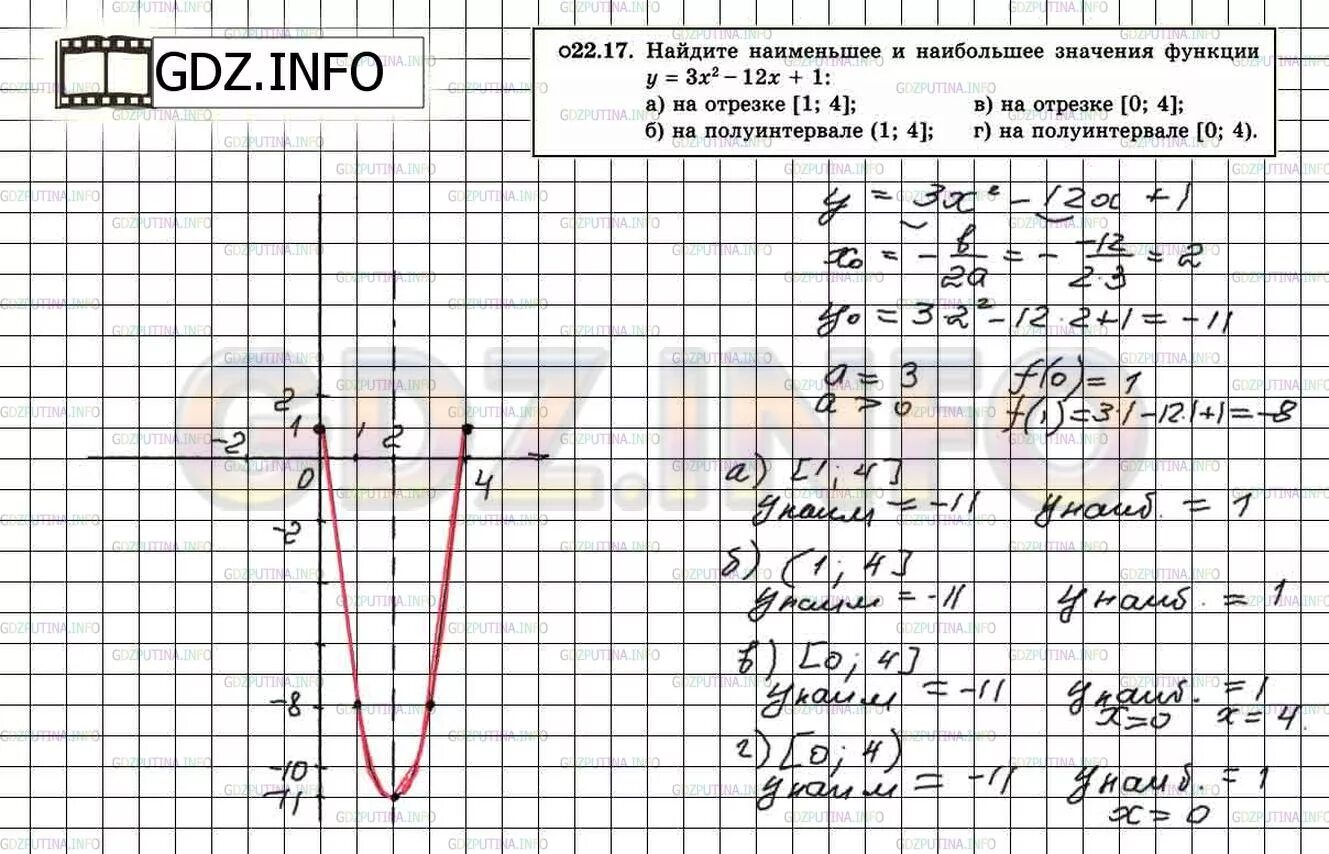 GDZ.INFO
○22.17. Найдите наименьшее и наибольшее значения функции
y = 3x² – 12x + 1:
а) на отрезке [1; 4];
в) на отрезке [0; 4];
б) на полуинтервале (1; 4];
г) на полуинтервале [0; 4).
y = 3x² - 12x + 1
x₀ = - в/2a = - -12/2·3 = 2
y₀ = 3·2² - 12·2+1 = -11
a = 3 f(0) = 1
a > 0 f(1) = 3·1 - 12·1+1 = -8
а) [1; 4]
yнаим = -11 yнаиб. = 1
б) (1; 4]
yнаим = -11 yнаиб. = 1
в) [0; 4]
yнаим = -11 yнаиб. = 1
x=0 x=4.
г) [0; 4)
yнаим = -11 yнаиб. = 1
x = 0
2
1
-2 1 2
0 4
-2
-8
-10
-11
GDZ.INFO
GDZPUTINA.INFO